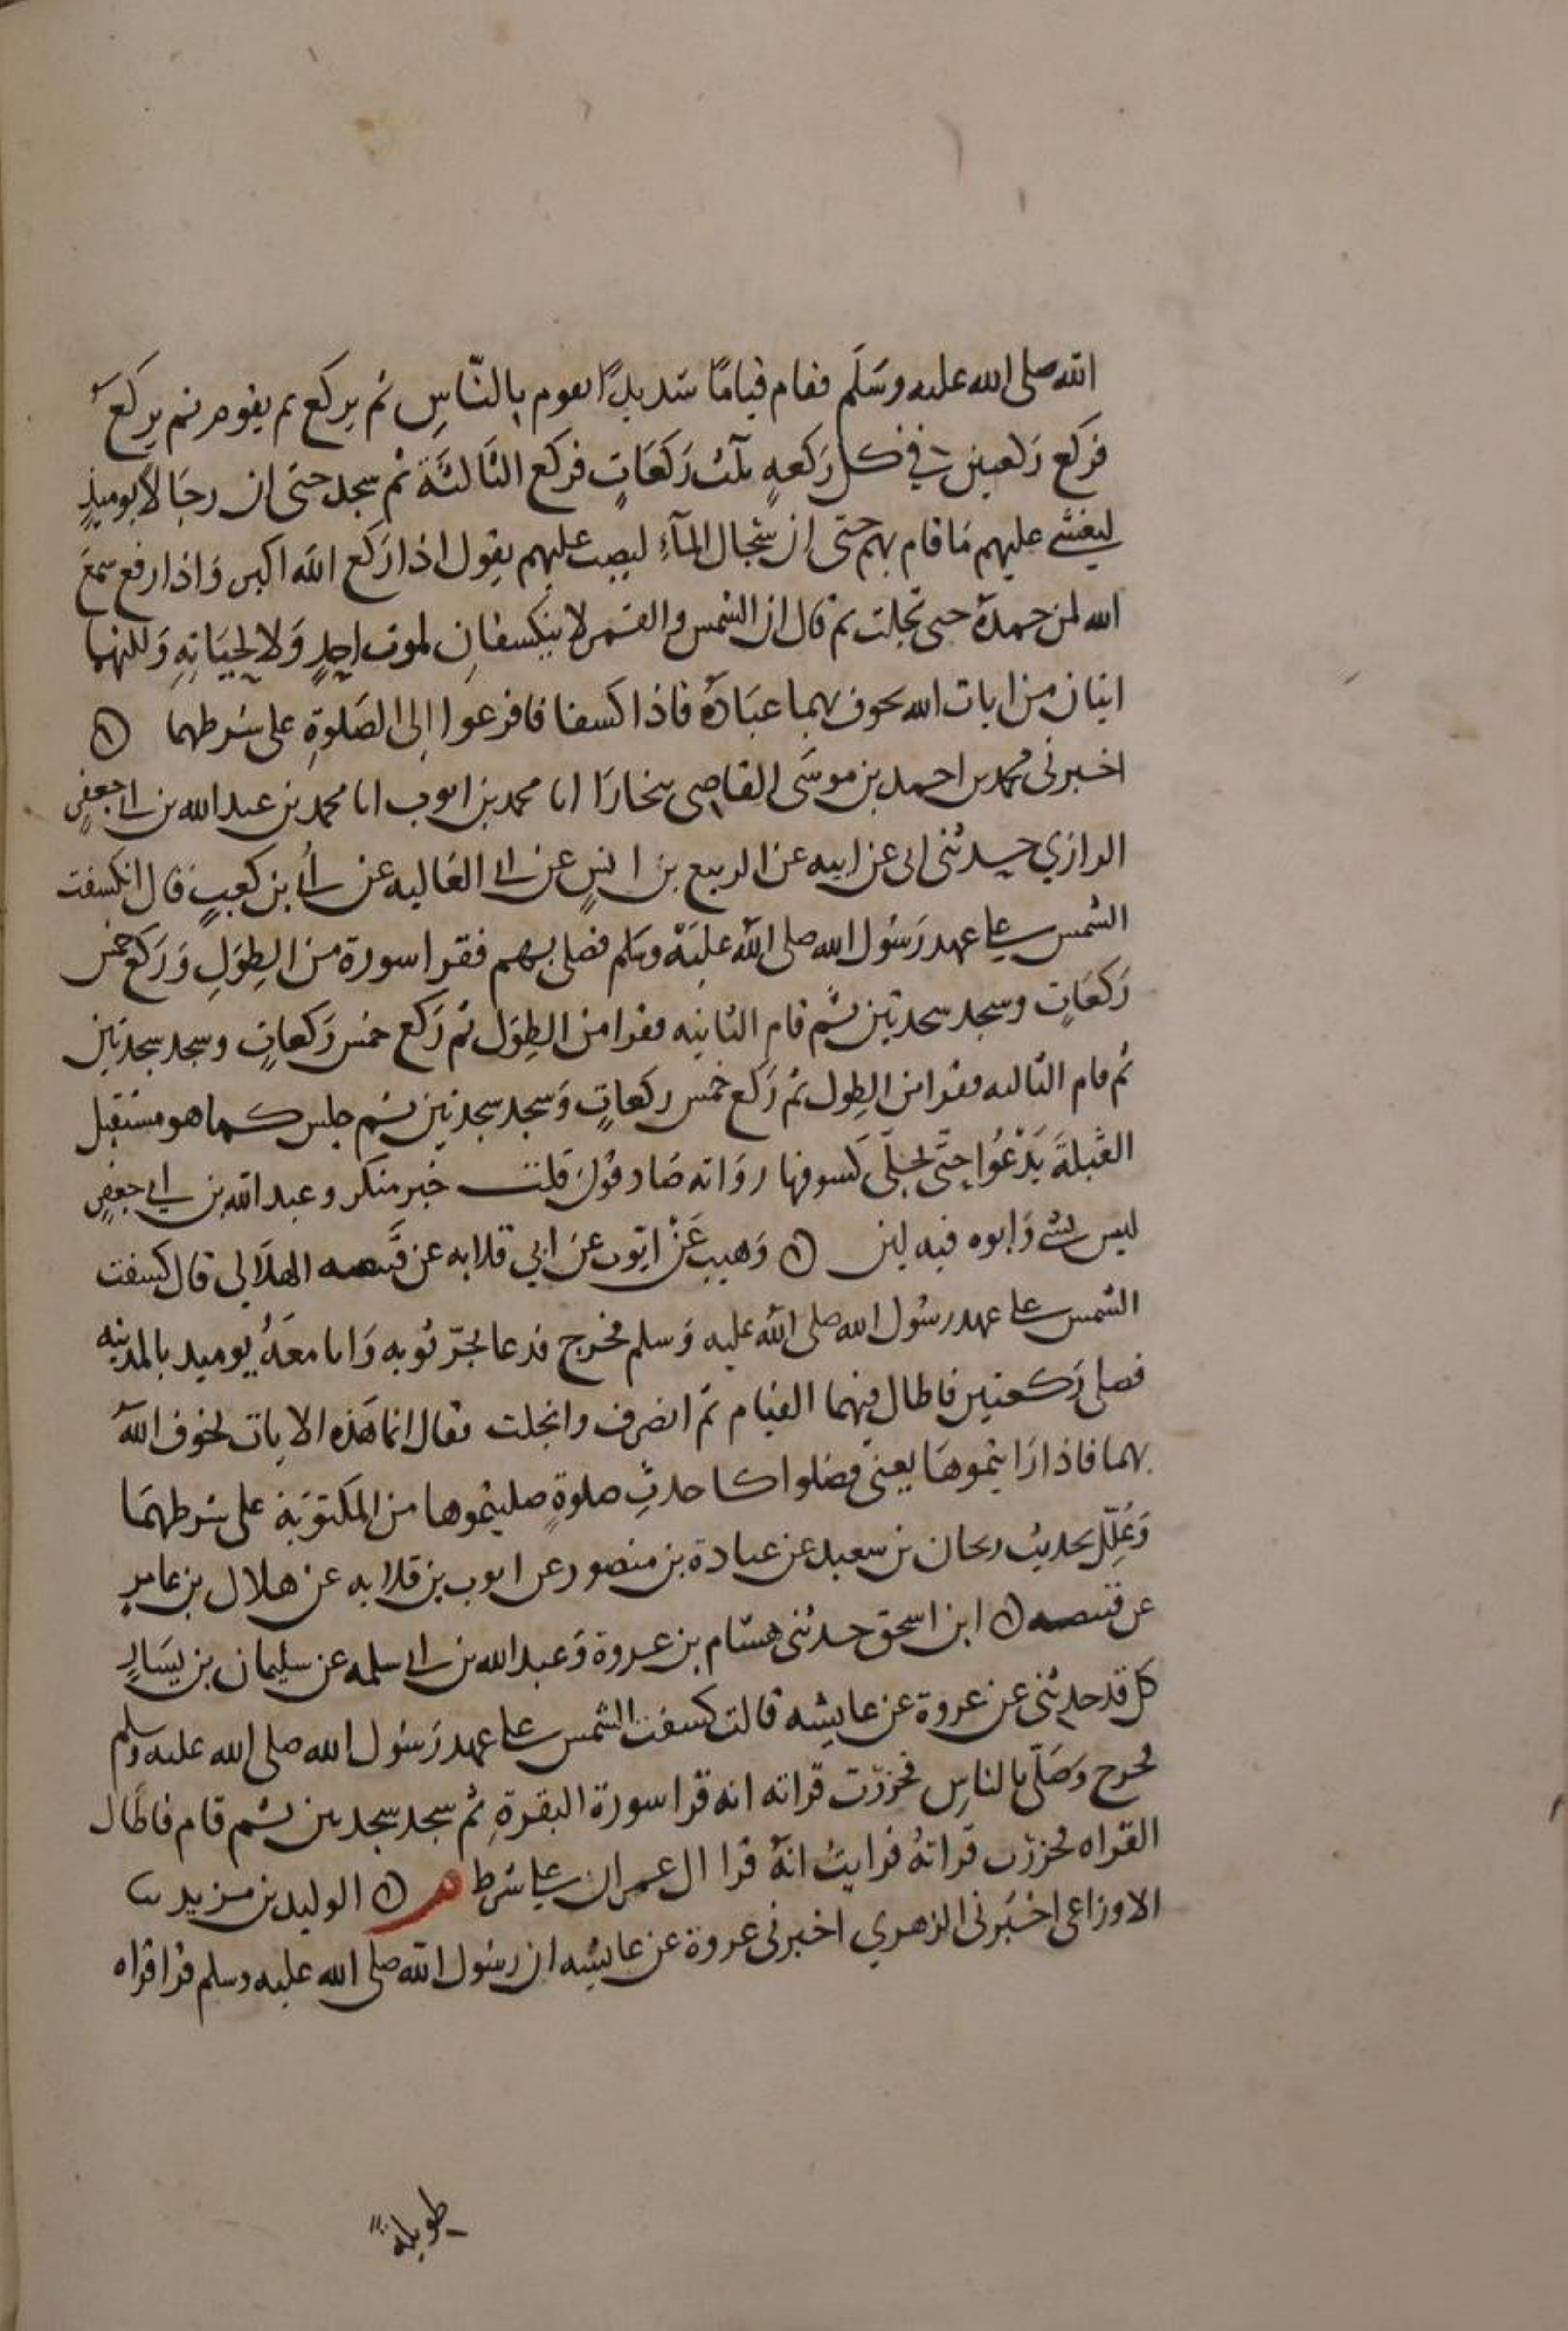 الله صلى الله عليه وسَلَم فقام قيامًا شديدًا يقوم بالنّاسِ ثم يركع ثم يقوم ثم يركعَ
فركع ركعتين في كل رَكعهٍ ثلث رَكعَاتٍ فركع الثالثَة ثم سجد حتى ان رجَالاً يوميذٍ
ليغشَى عليهم مَا قام بهم حتى ان سِجَال المآءِ ليصب عليهم يقول اذا رَكع الله اكبر وَاذا رفع سمعَ
الله لمن حمدهُ حتى تجلت ثم قال ان الشمس والقمر لا ينكسفانِ لموت احدٍ وَلا لحيَاتِهِ وَلكنهما
ايتان من ايات الله يخوف بهما عبَادهُ فاذا كسفا فافزعوا اِلى الصَلوةِ على شرطهما ۞
اخبرنى محمد بن احمد بن موسَى القاضى ببخارَا انا محمد بن ايوب انا محمد بن عبد الله بن ابى جعفرٍ
الرازي حدثنى ابى عن ابيه عن الربيع بن انسٍ عن ابى العَاليه عن اُبى بن كعبٍ قال انكسفت
الشمس على عهد رَسُول الله صلى الله عليَهْ وسَلم فصلى بهم فقرا سورة من الطِوَلِ وَرَكع خمس
رَكعَاتٍ وسجد سجدتين ثم قام الثانيه فقرا من الطِوَل ثم رَكع خمس رَكعاتٍ وسجد سجدتين
ثم قام الثالثه فقرا من الطِول ثم رَكع خمس ركعاتٍ وَسجد سجدتين ثم جلس كما هو مستقبل
القبلةَ يَدْعُوا حتّى تجلّى كسوفها روَاته صَادقوُن قلت خبر منكر وعبد الله بن ابي جعفرٍ
ليس بشى وَابوه فيه لين ۞ وَهيب عَنْ ايّوب عن ابي قلابه عن قَبيصه الهلَالى قال كسفت
الشمس على عهد رسُول الله صلى الله عليه وَسلم فخرج فزعا يجرّ ثوبه وَانا معَهُ يوميذ بالمدينه
فصلى رَكعتين فاطال فيهما القيام ثم انصرف وانجلت فقال انما هَذه الايات يخوف اللهُ
بهما فاذا رَايتموهَا يعنى فصَلوا كاحدثِ صلوةٍ صليتموها من المكتوبَة على شرطهمَا
وَعُلِّل بحديث ريحان بن سعيد عن عبادة بن منصور عن ايوب بن قلابه عن هلال بن عامرٍ
عن قبيصه ۞ ابن اسحق حدثنى هشام بن عروة وَعبد الله بن ابى سلمه عن سليمان بن يسَارٍ
كل قد حدثنى عن عروة عن عايشه قالت كسفت الشمس على عهد رَسُول الله صلى الله عليه وسلم
فخرج وَصَلّى بالناسِ فحزرْت قراته انه قرا سورة البقرةِ ثم سجد سجدتين ثم قام فاطَال
القراه فحزرْت قراتهُ فرايتُ انهُ قرا ال عمران على شرط م ۞ الوليد بن مزيد ثنا
الاوزاعى اخبَرنى الزهري اخبرنى عروة عن عايشه ان رسُول الله صلى الله عليه وسلم قرا قراه
طويلة